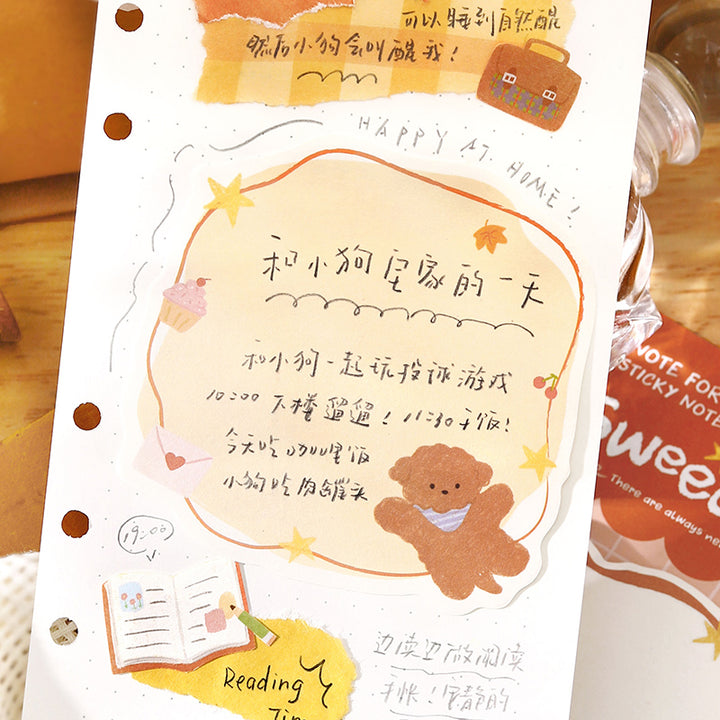 可以睡到自然醒
然后小狗会叫醒我！
HAPPY AT HOME！
和小狗宅家的一天
和小狗一起玩投球游戏
10:00 下楼遛遛！11:30 干饭！
今天吃咖喱饭
小狗吃肉罐头
19:00
Reading
边读边做阅读
手帐！安静的
NOTE FOR
STICKY NOTE
Sweet
There are always